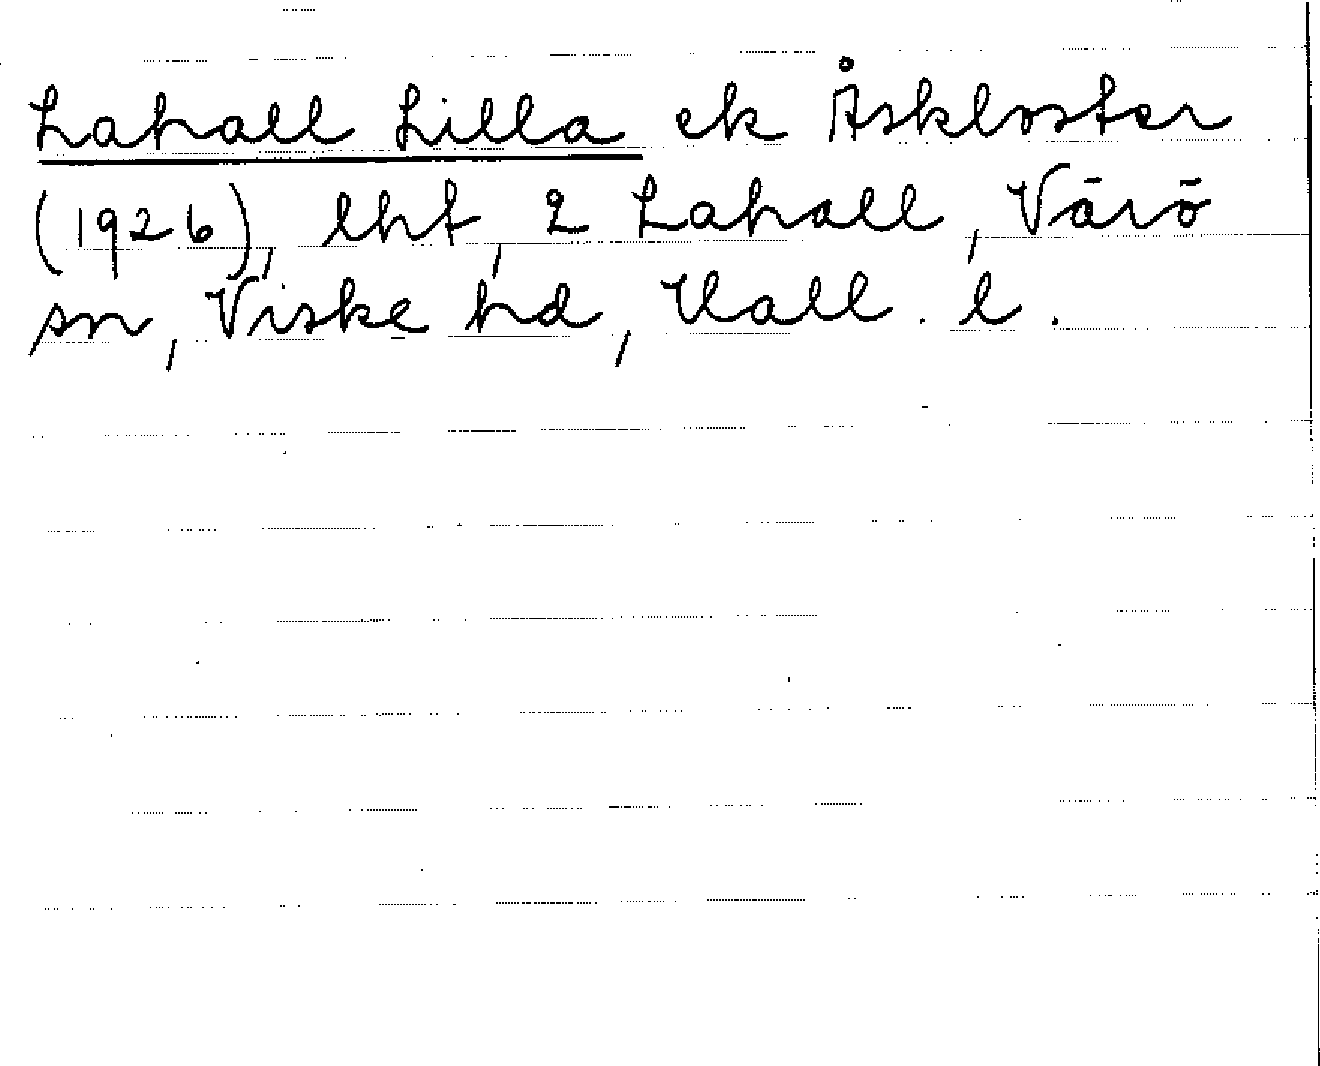 Lahall Lilla ek Åskloster
(1926), lht, 2 Lahall, Värö
sn, Viske hd, Hall. l.